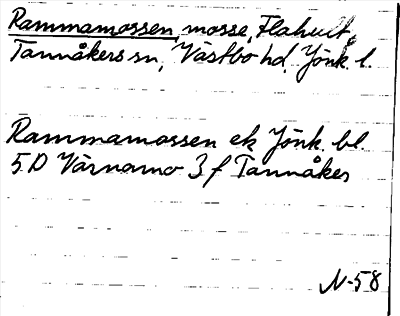 Rammamossen, mosse, Flahult,
Tannåkers sn, Västbo hd. Jönk. l.
Rammamossen ek Jönk. bl.
5D Värnamo 3f Tannåker
N-58